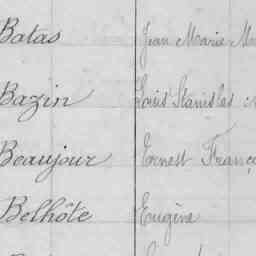 Batas Jean Marie
Bazin Louis Stanislas
Beaujour Ernest Franço
Belhôte Eugène